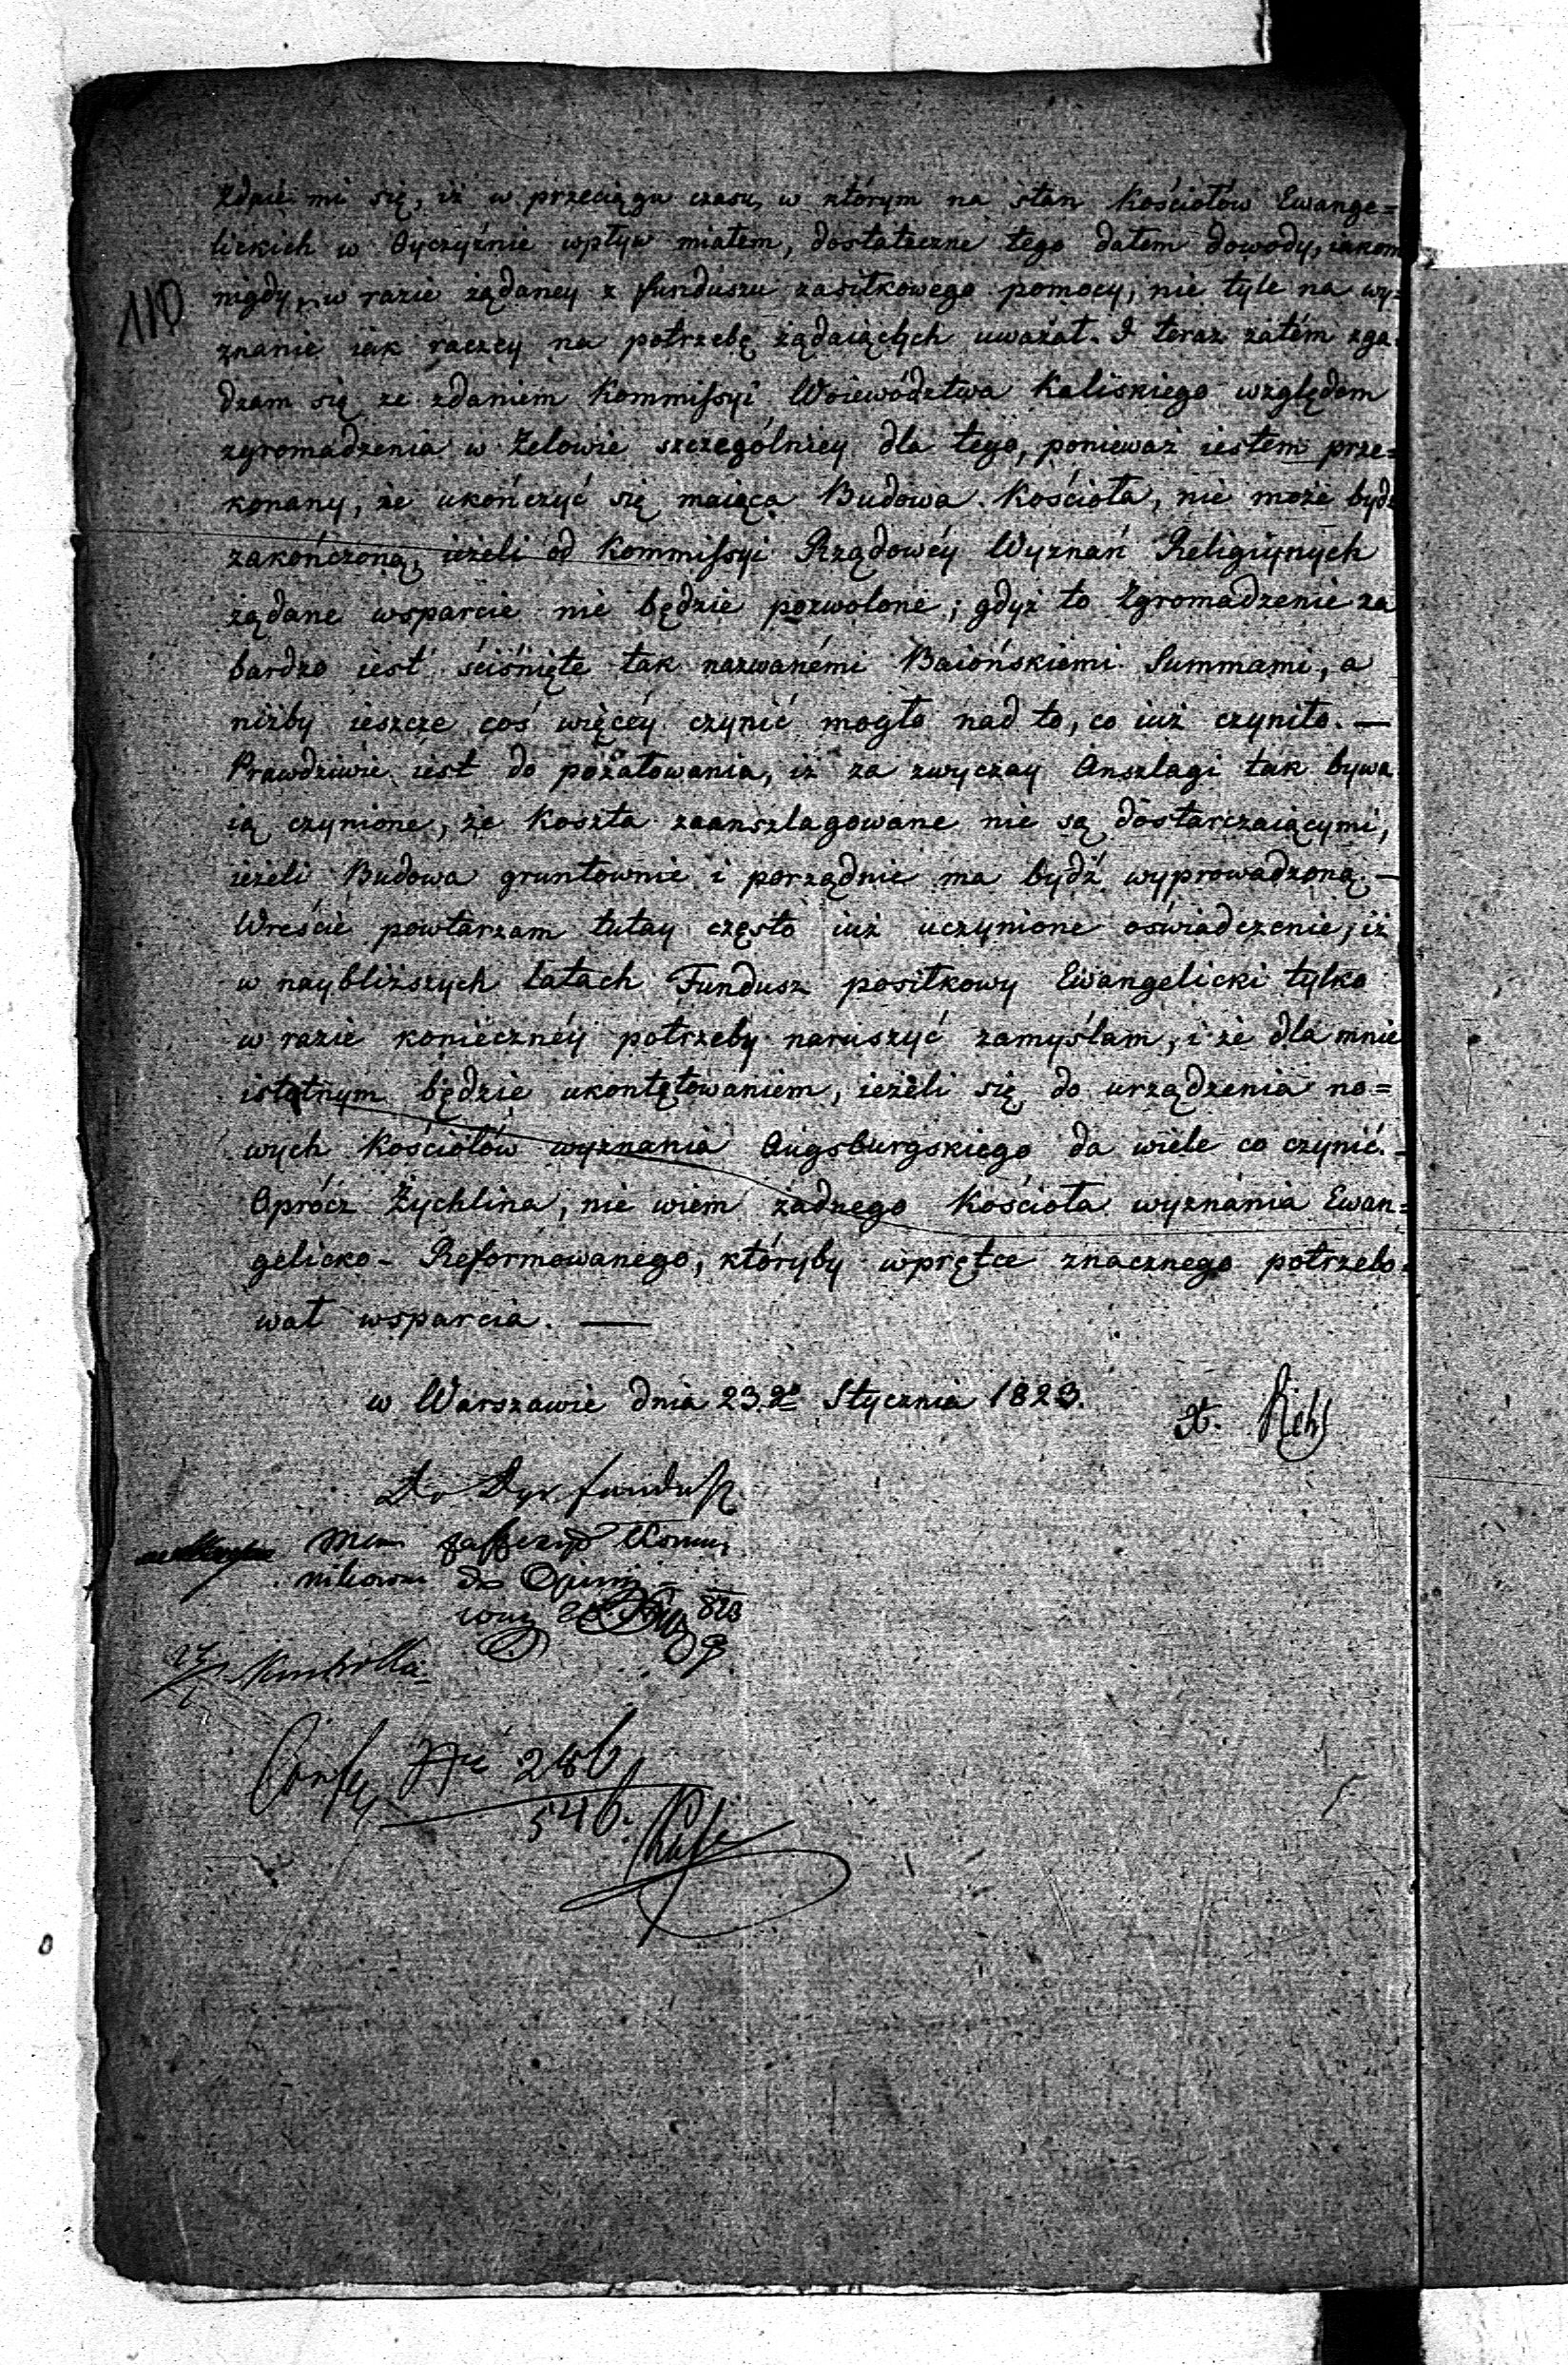 110
Zdaie mi się, iż w przeciągu czasu, w którym na stan Kościołów Ewange=
lickich w Oyczyźnie wpływ miałem, dostateczne tego dałem dowody, iakom
nigdy, w razie żądaney z funduszu zasiłkowego pomocy, nie tyle na wy=
znanie iak raczey na potrzebę żądaiących uważał. I teraz zatém zga=
dzam się ze zdaniem Kommissyi Woiewództwa Kaliskiego względem
zgromadzenia w Zelowie szczególniey dla tego, ponieważ iestem prze=
konany, że ukończyć się maiąca Budowa Kościoła, nie może bydź
zakończoną, ieżeli od Kommissyi Rządowéy Wyznań Religiynych
żądane wsparcie nie będzie pozwolone; gdyż to Zgromadzenie za
bardzo iest ściśnięte tak nazwanémi Baiońskiemi Summami, a
niżby ieszcze coś więcéy czynić mogło nad to, co iuż czyniło. —
Prawdziwie iest do pożałowania, iż za zwyczay Anszlagi tak bywa
ią czynione, że koszta zaanszlagowane nie są dostarczaiącymi,
ieżeli Budowa gruntownie i porządnie ma bydź wyprowadzoną. —
Wreście powtarzam tutay często iuż uczynione oświadczenie, iż
w naybliższych latach Fundusz posiłkowy Ewangelicki tylko
w razie koniecznéy potrzeby naruszyć zamyślam, i że dla mnie
istotnym będzie ukontętowaniem, ieżeli się do urządzenia no=
wych Kościołów wyznania Augsburgskiego da wiele co czynić. =
Oprócz Żychlina, nie wiem żadnego Kościoła wyznania Ewan=
gelicko - Reformowanego, któryby wprętce znacznego potrzebo=
wał wsparcia. —
w Warszawie dnia 23go Stycznia 1823.
X.
Do Dyr. fundusz
do Opinij
823
Kontrolla
No 246
546.